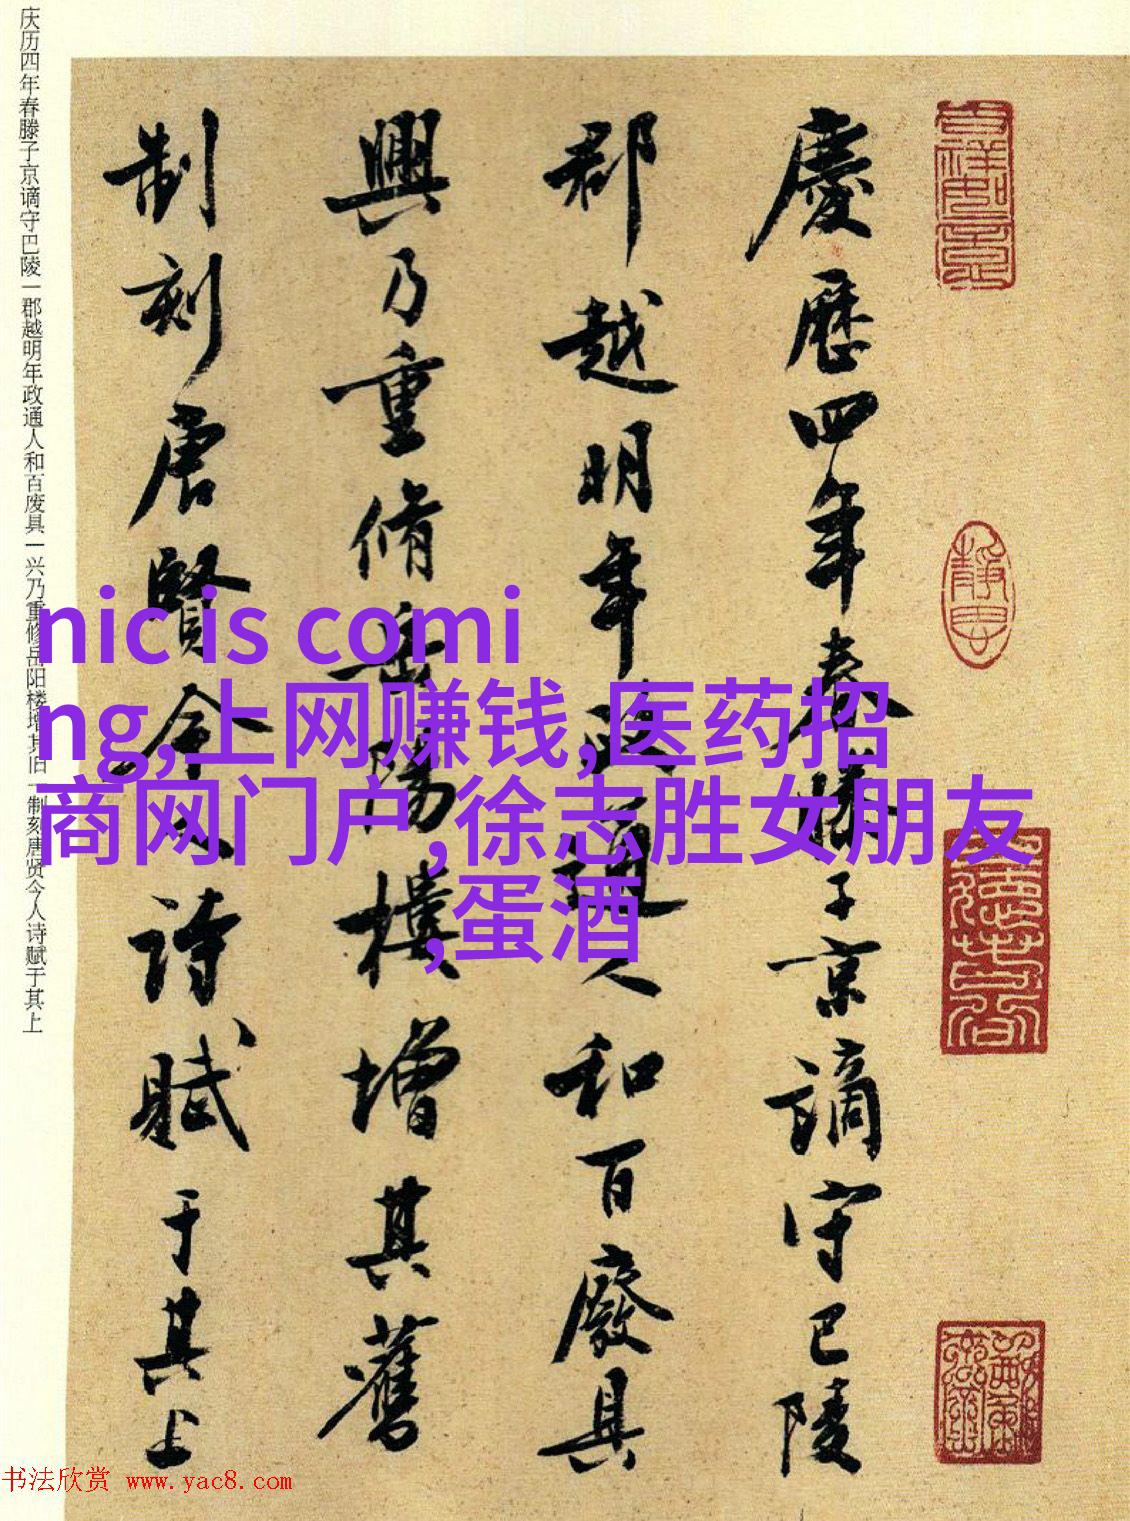 庆历四年春滕子京谪守巴陵一郡越明年政通人和百废具一兴乃重修岳阳楼增其旧一制刻唐贤今人诗赋于其上
慶歷四年春滕子京謫守巴陵
郡越明年政通人和百廢具
興乃重脩岳陽樓增其舊
制刻唐賢今人詩賦于其上
nic is comi
ng,上网赚钱,医药招
商网门户,徐志胜女朋友
,蛋酒
书法欣赏 www.yac8.com